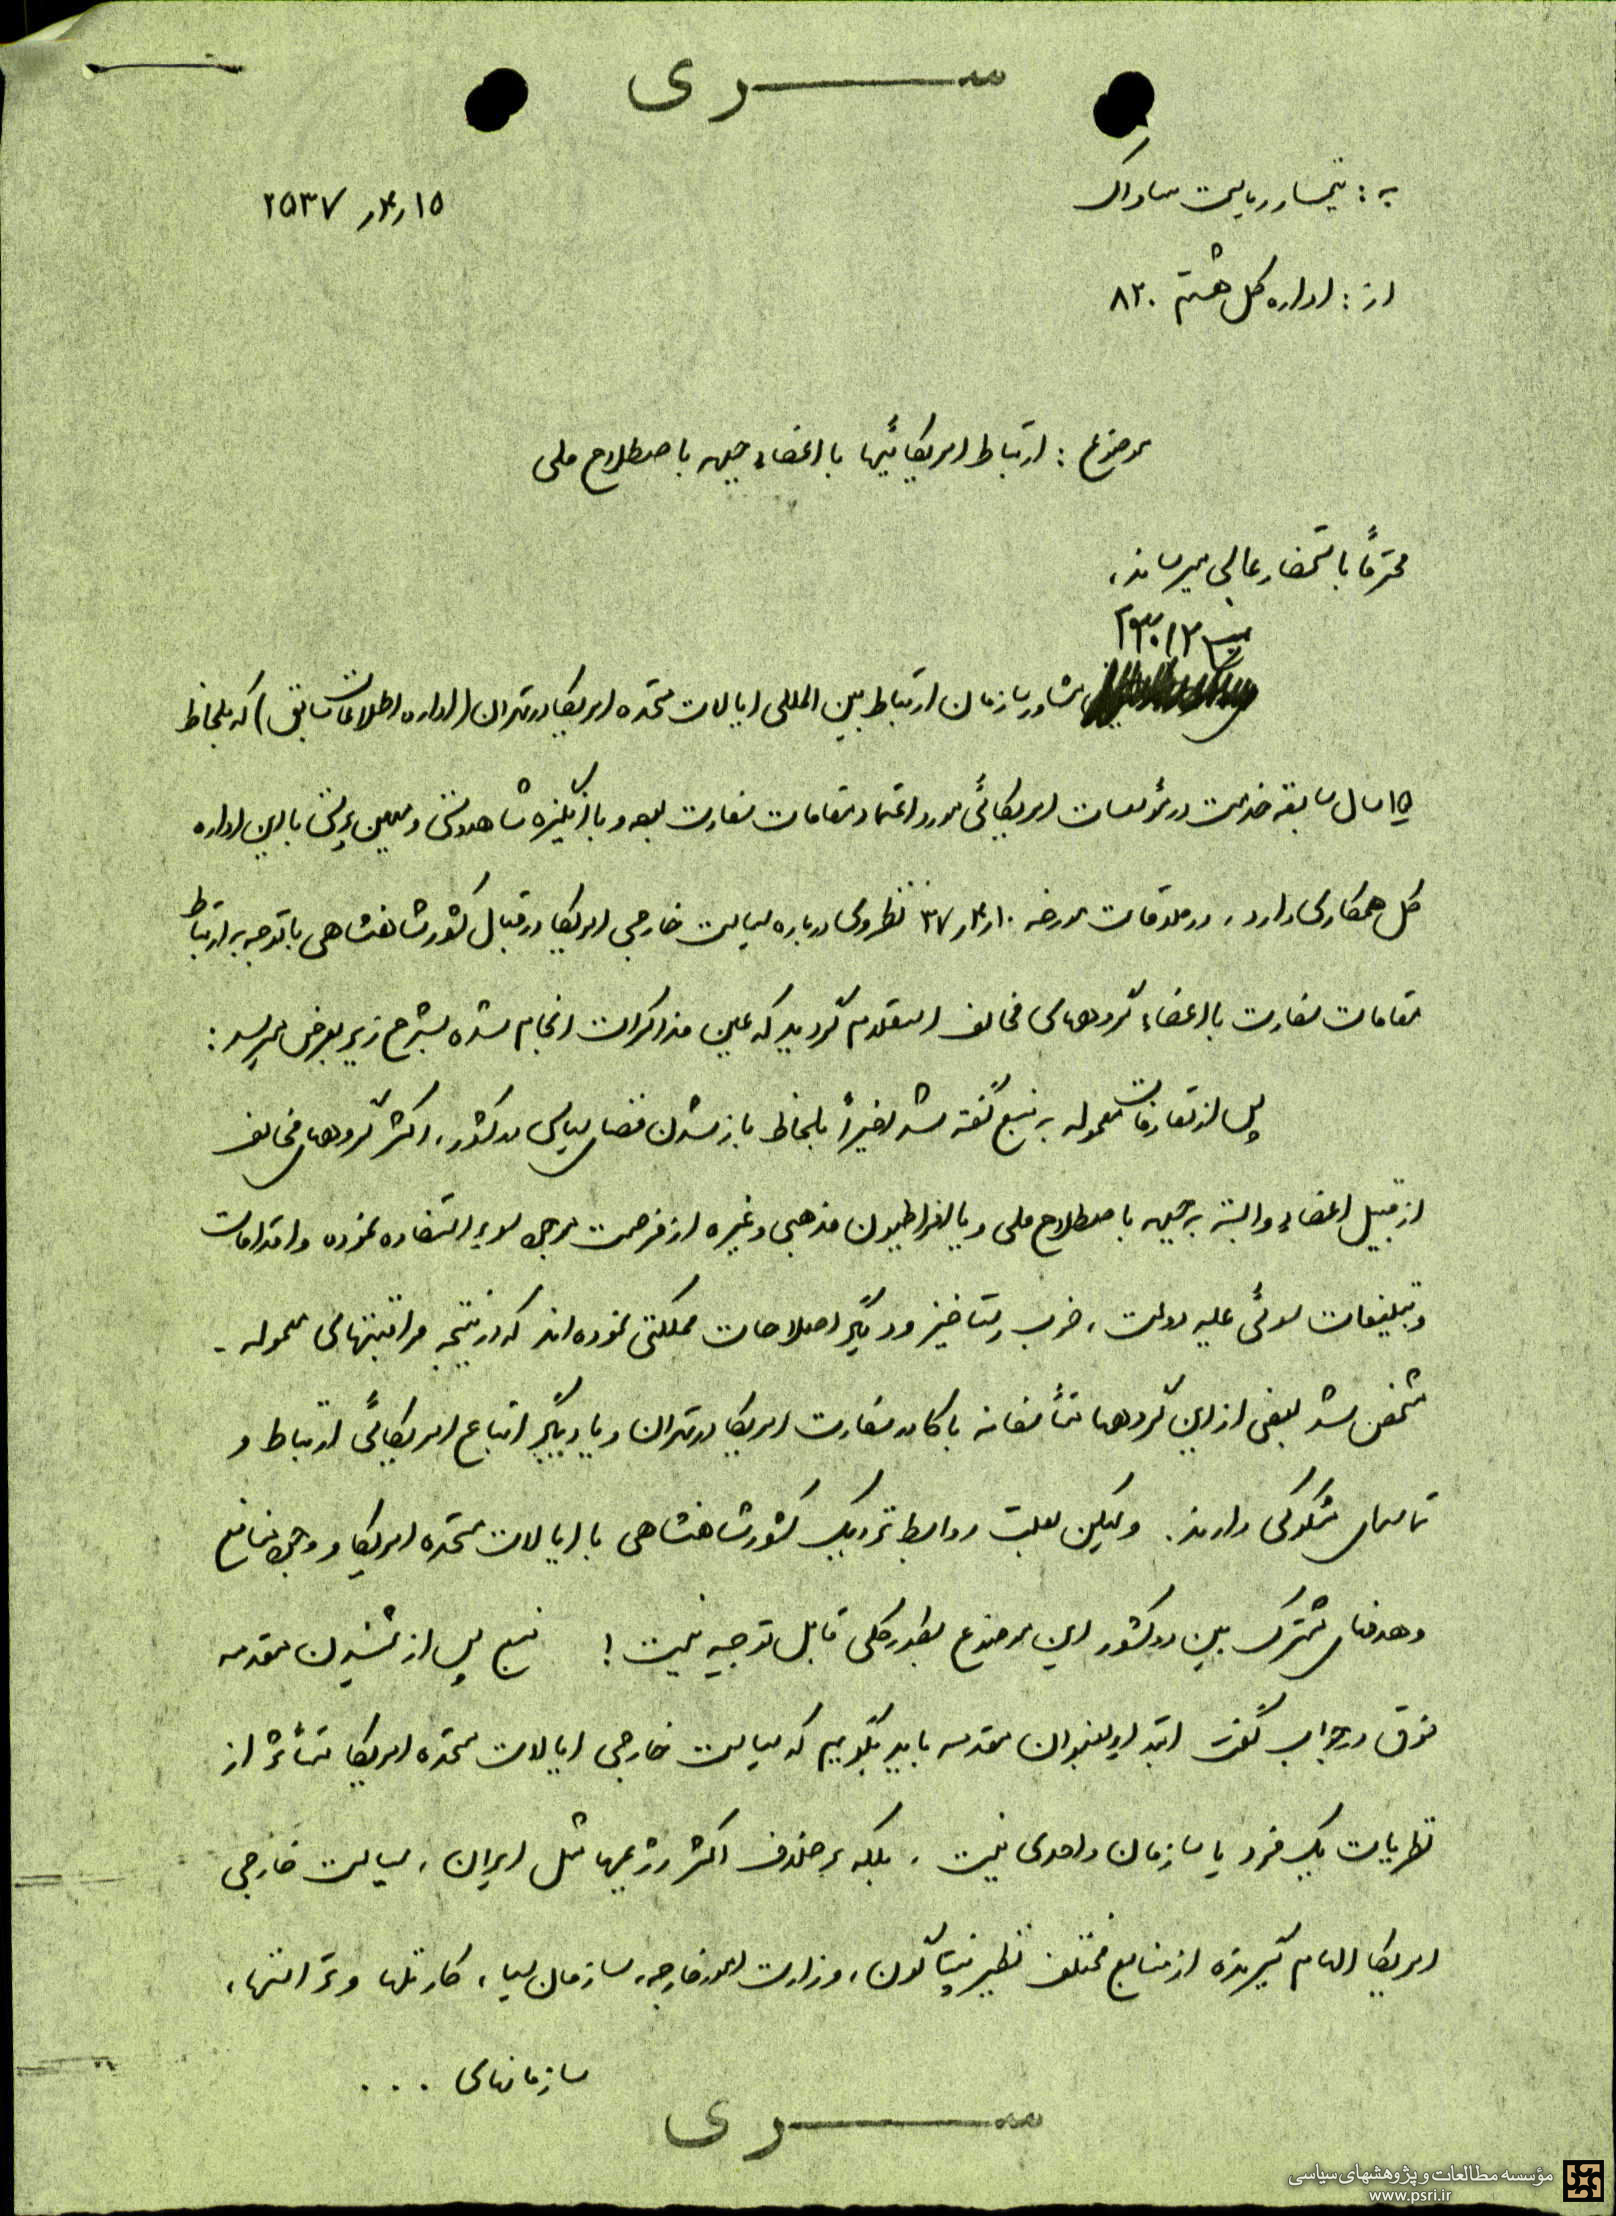 سری
به : تیمسار ریاست ساواک
۱۵ر۴ر ۲۵۳۷
از : اداره کل هشتم ۸۲۰
موضوع : ارتباط امریکائیها با اعضاء جبهه باصطلاح ملی
محترماً باستحضار عالی میرساند ،
مشاور سازمان ارتباط بین المللی ایالات متحده امریکا در تهران (اداره اطلاعات سابق) که بلحاظ
۱۵ سال سابقه خدمت در مؤسسات امریکائی مورد اعتماد مقامات سفارت بوده و با انگیزه شاهدوستی و میهن پرستی با این اداره
کل همکاری دارد ، در ملاقات مورخه ۱۰ر۴ر۳۷ نظر وی درباره سیاست خارجی امریکا در قبال کشور شاهنشاهی با توجه به ارتباط
مقامات سفارت با اعضاء گروههای مخالف استعلام گردید که عین مذاکرات انجام شده بشرح زیر بعرض میرسد :
پس از تعارفات معموله به منبع گفته شد اخیراً بلحاظ باز شدن فضای سیاسی در کشور ، اکثر گروههای مخالف
از قبیل اعضاء وابسته به جبهه باصطلاح ملی و یا افراطیون مذهبی و غیره از فرصت موجود سوء استفاده نموده و اقدامات
و تبلیغات سوئی علیه دولت ، حزب رستاخیز و دیگر اصلاحات مملکتی نموده اند که در نتیجه مراقبتهای معموله -
مشخص شد بعضی از این گروهها متأسفانه با کادر سفارت امریکا در تهران و یا دیگر اتباع امریکائی ارتباط و
تماسهای مشکوکی دارند . ولیکن بعلت روابط نزدیک کشور شاهنشاهی با ایالات متحده امریکا و وجود منافع
و هدفهای مشترک بین دو کشور این موضوع بطور کلی قابل توجیه نیست ! منبع پس از شنیدن مقدمه
فوق در جواب گفت ابتدا بعنوان مقدمه باید بگویم که سیاست خارجی ایالات متحده امریکا متأثر از
نظریات یک فرد یا سازمان واحدی نیست ، بلکه برخلاف اکثر رژیمها مثل ایران ، سیاست خارجی
امریکا الهام گیرنده از منابع مختلف نظیر پنتاگون ، وزارت امور خارجه ، سازمان سیا ، کارتلها و تراستها ،
سازمانهای . . .
سری
مؤسسه مطالعات و پژوهشهای سیاسی
www.psri.ir